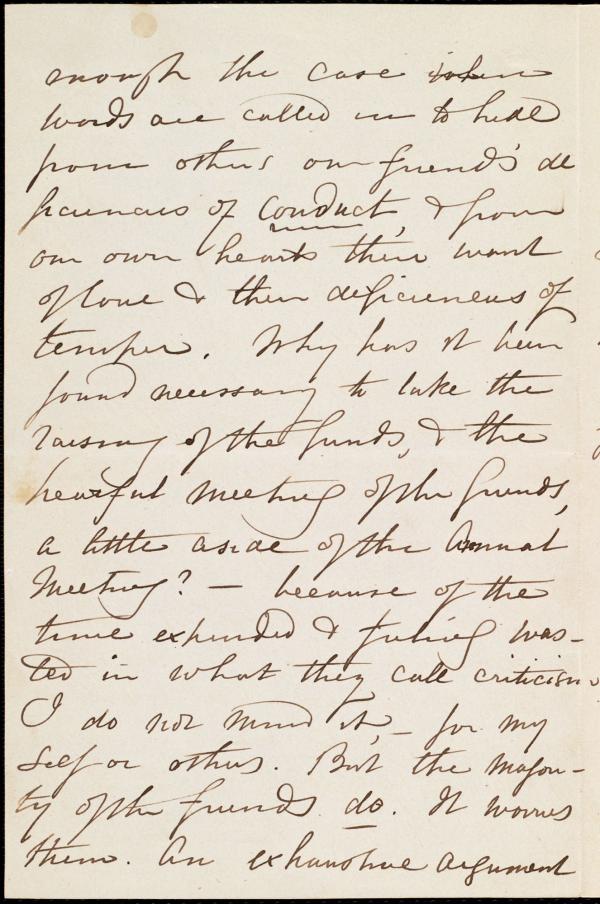 enough the case when
words are called in to hide
from others our friends' de
ficiencies of conduct, & from
our own hearts their want
of love & their deficiencies of
temper. Why has it been
found necessary to take the
raising of the funds, & the
heartful meeting of the friends,
a little aside of the Annual
Meeting? — because of the
time expended & feeling was-
ted in what they call criticism.
I do not mind it, — for my
self or others. But the majori-
ty of the friends do. It worries
them. An exhaustive argument